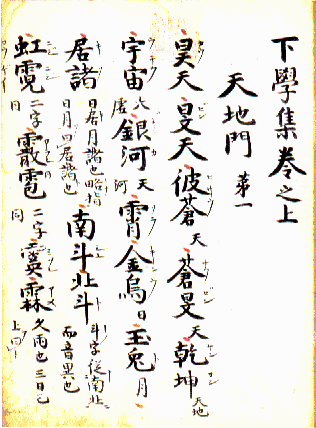 下學集卷之上
天地門 第一
昊天 旻天 彼蒼 天 蒼旻 天 乾坤 天地
宇宙 大虛 銀河 天河 霄 金烏 日 玉兔 月
居諸 日居月諸也略指日月曰居諸也 南斗北斗 斗字從南北而音異也
虹霓 二字同 霰雹 二字同 霖 久雨也三日已上曰